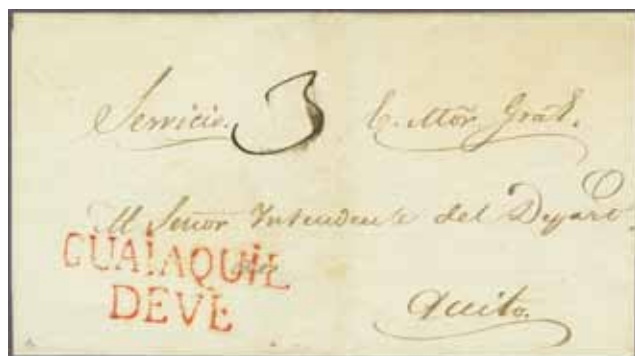 Servicio. 3 C. Mor. Gral.
Al Señor Yntendente del Depart.
GUAIAQUIL
DEVE
Quito.